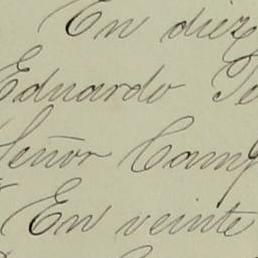 En diez
Eduardo
Señor Camp
En veinte